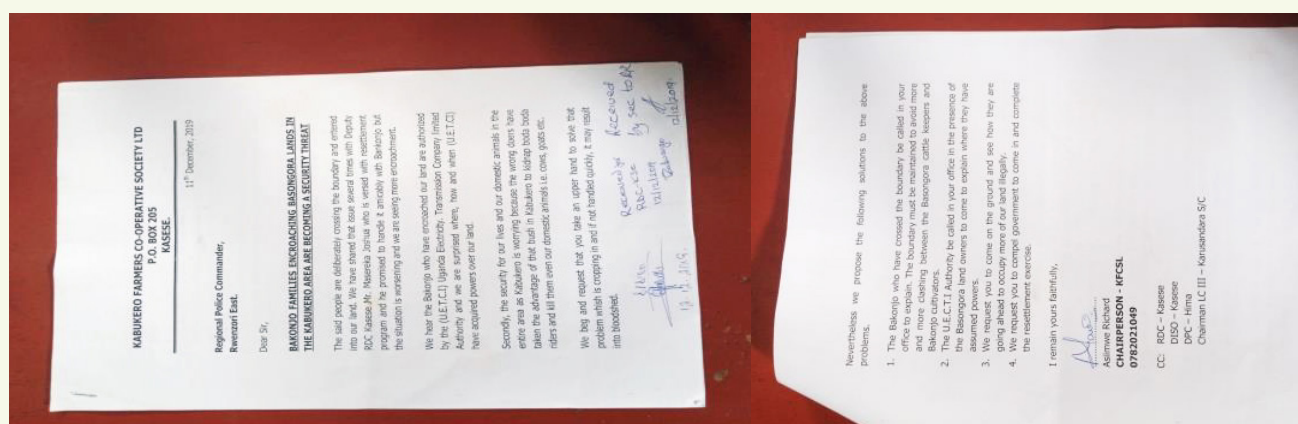 KABUKERO FARMERS CO-OPERATIVE SOCIETY LTD
P.O. BOX 205
KASESE.
11th December, 2019
Regional Police Commander,
Rwenzori East.
Dear Sir,
BAKONJO FAMILIES ENCROACHING BASONGORA LANDS IN
THE KABUKERO AREA ARE BECOMING A SECURITY THREAT
The said people are deliberately crossing the boundary and entered
into our land. We have shared that issue several times with Deputy
RDC Kasese Mr. Masereka Joshua who is versed with resettlement
program and he promised to handle it amicably with Bankonjo but
the situation is worsening and we are seeing more encroachment.
We hear the Bakonjo who have encroached our land are authorized
by the (U.E.T.C.I) Uganda Electricity. Transmission Company limited
Authority and we are surprised where, how and when (U.E.T.CI)
have acquired powers over our land.
Secondly, the security for our lives and our domestic animals in the
entire area as Kabukero is worrying because the wrong doers have
taken the advantage of that bush in Kabukero to kidnap boda boda
riders and kill them even our domestic animals i.e. cows, goats etc.
We beg and request that you take an upper hand to solve that
problem which is cropping in and if not handled quickly, it may result
into bloodshed.
Received
RDC-KSE
12/12/2019
Received
by sec to
12.12.2019.
Nevertheless we propose the following solutions to the above
problems.
1. The Bakonjo who have crossed the boundary be called in your
office to explain. The boundary must be maintained to avoid more
and more clashing between the Basongora cattle keepers and
Bakonjo cultivators.
2. The U.E.C.T.I Authority be called in your office in the presence of
the Basongora land owners to come to explain where they have
assumed powers.
3. We request you to come on the ground and see how they are
going ahead to occupy more of our land illegally.
4. We request you to compel government to come in and complete
the resettlement exercise.
I remain yours faithfully,
Asiimwe Richard
CHAIRPERSON - KFCSL
0782021049
CC: RDC – Kasese
DISO – Kasese
DPC – Hima
Chairman LC III – Karusandara S/C